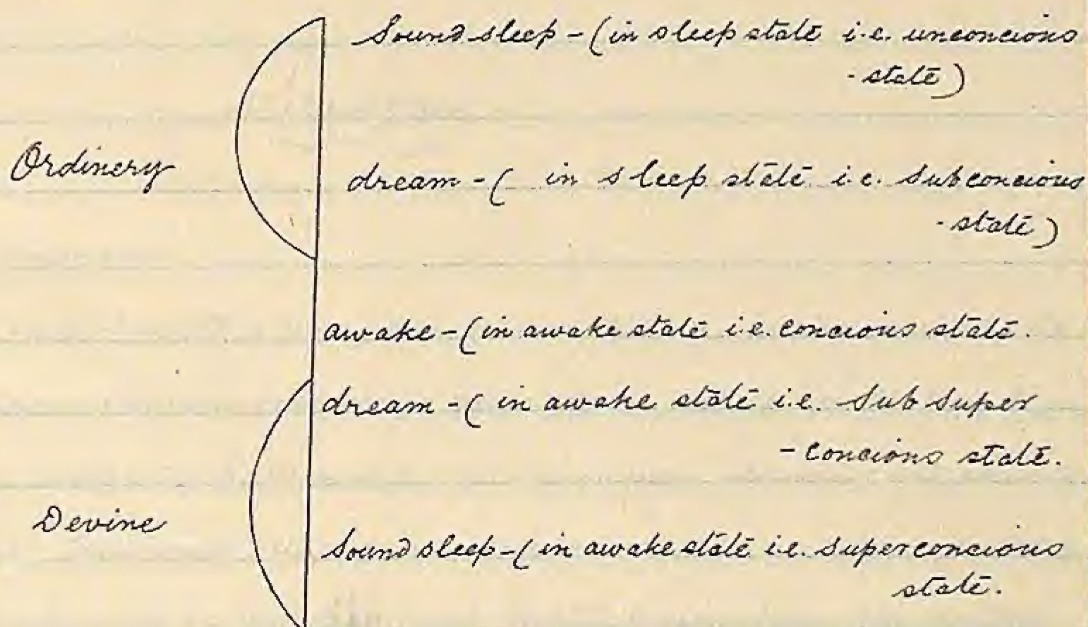 Sound sleep - (in sleep state i.e. unconcious
- state)
Ordinery
dream - ( in sleep state i.e. subconcious
- state)
awake - (in awake state i.e. concious state.
dream - ( in awake state i.e. Sub Super
- Concious state.
Devine
Sound sleep - ( in awake state i.e. superconcious
state.